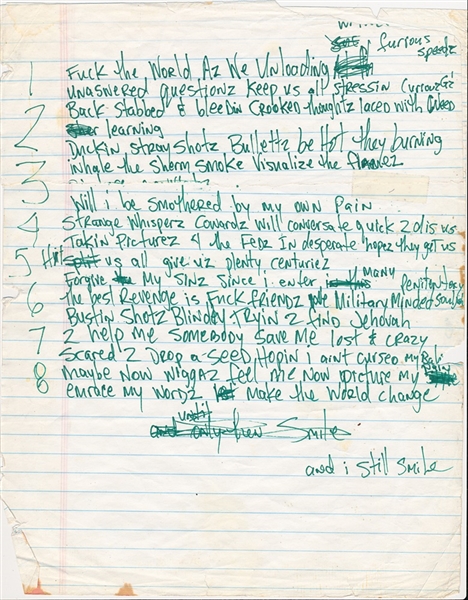 furious
speedz
1 Fuck the World Az We Unlooding
unaswered questionz keep us all stressin CuriouzGz
Back Stabbed & bleedin Crooked thoughtz laced with weed
2 learning
Duckin stray shotz Bullettz be Hot they burning
inhale the sherm smoke visualize the flamez
3
Will i be smothered by my own pain
4 Strange Whisperz Cowardz will conversate quick 2 dis us
Takin Picturez 4 the Fedz in desperate hopez they get us
5 Hit us all give uz plenty centuriez
Forgive My Sinz Since i enter many penitentiary
6 the best Revenge is Fuck Friendz we Military Minded
Bustin Shotz Blindley Tryin 2 find Jehovah
7 2 help me Somebody Save me lost & crazy
Scared 2 Drop a Seed Hopin i aint cursed my
8 maybe Now Niggaz feel me Now picture my
emrace my Wordz make the World change
until
and only then Smile
and i Still Smile